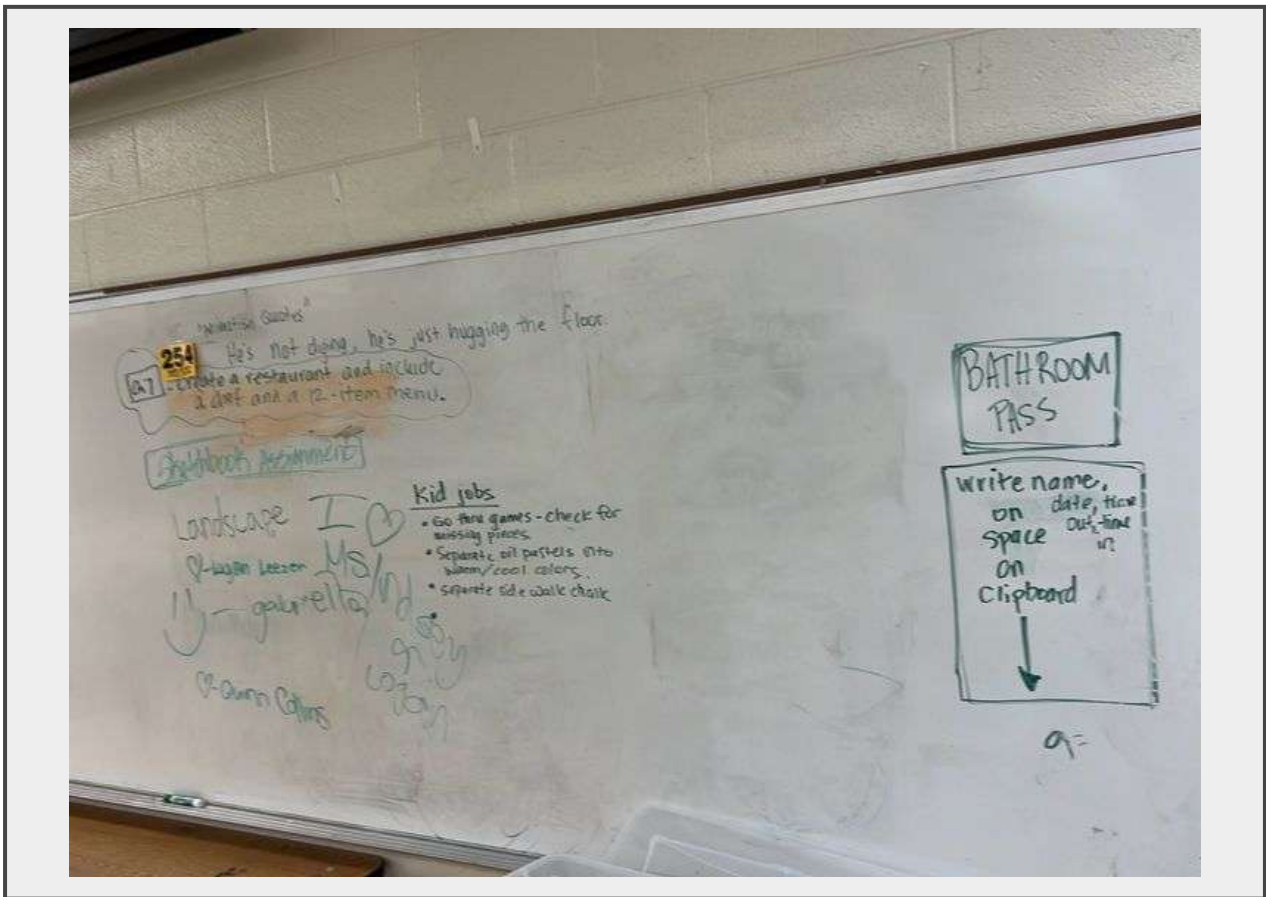 Quotes"
He's not dying, he's just hugging the floor.
254
create a restaurant and include
a chef and a 12-item menu.
Sketchbook Assignment
Landscape
I ♡
Ms
gabriella
♡-Quinn Collins
Kid jobs
• Go thru games - check for
missing pieces
• Separate oil pastels into
warm/cool colors.
• separate side walk chalk
BATHROOM
PASS
write name,
on date, time
space out, time
on in
clipboard
a=